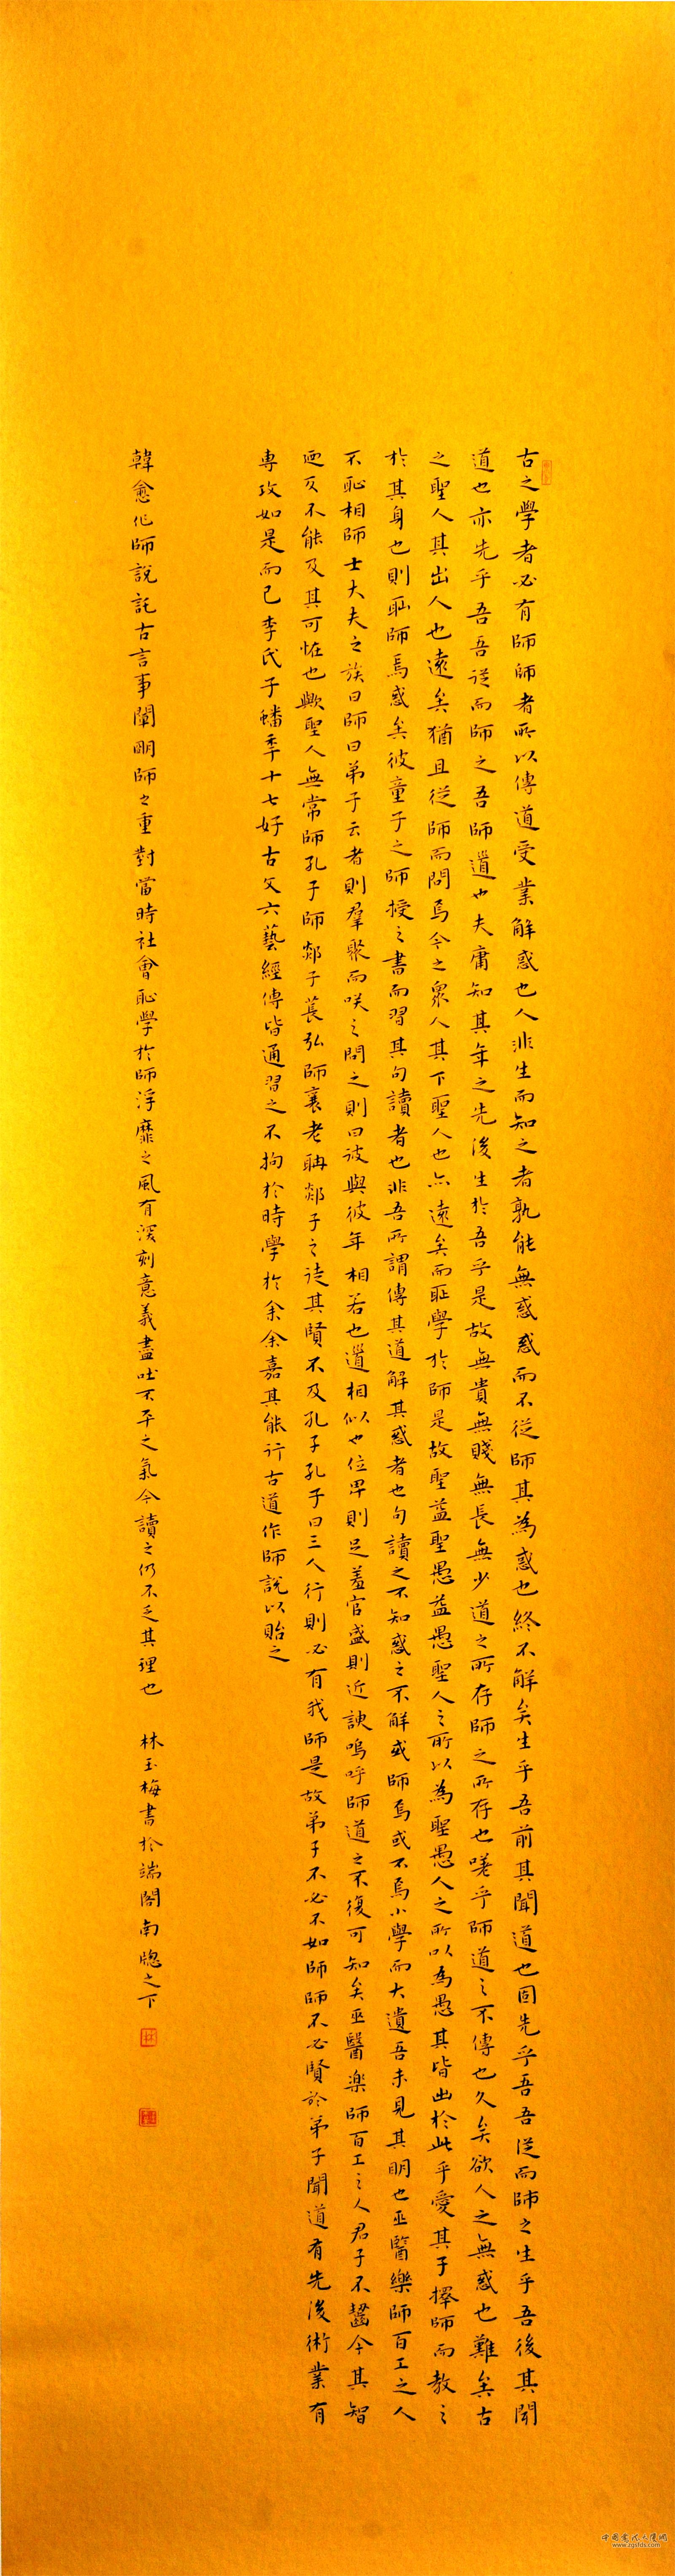 古之學者必有師師者所以傳道受業解惑也人非生而知之者孰能無惑惑而不從師其為惑也終不解矣生乎吾前其聞道也固先乎吾吾從而師之生乎吾後其聞
道也亦先乎吾吾從而師之吾師道也夫庸知其年之先後生於吾乎是故無貴無賤無長無少道之所存師之所存也嗟乎師道之不傳也久矣欲人之無惑也難矣古
之聖人其出人也遠矣猶且從師而問焉今之眾人其下聖人也亦遠矣而恥學於師是故聖益聖愚益愚聖人之所以為聖愚人之所以為愚其皆出於此乎愛其子擇師而教之
於其身也則恥師焉惑矣彼童子之師授之書而習其句讀者也非吾所謂傳其道解其惑者也句讀之不知惑之不解或師焉或不焉小學而大遺吾未見其明也巫醫樂師百工之人
不恥相師士大夫之族曰師曰弟子云者則群聚而笑之問之則曰彼與彼年相若也道相似也位卑則足羞官盛則近諛嗚呼師道之不復可知矣巫醫樂師百工之人君子不齒今其智
迺反不能及其可怪也歟聖人無常師孔子師郯子萇弘師襄老聃郯子之徒其賢不及孔子孔子曰三人行則必有我師是故弟子不必不如師師不必賢於弟子聞道有先後術業有
專攻如是而已李氏子蟠年十七好古文六藝經傳皆通習之不拘於時學於余余嘉其能行古道作師說以貽之
韓愈作師說託古言事闡明師之重對當時社會恥學於師浮靡之風有深刻意義盡吐不平之氣今讀之仍不乏其理也 林玉梅書於端閣南牕之下
www.zgsfds.com